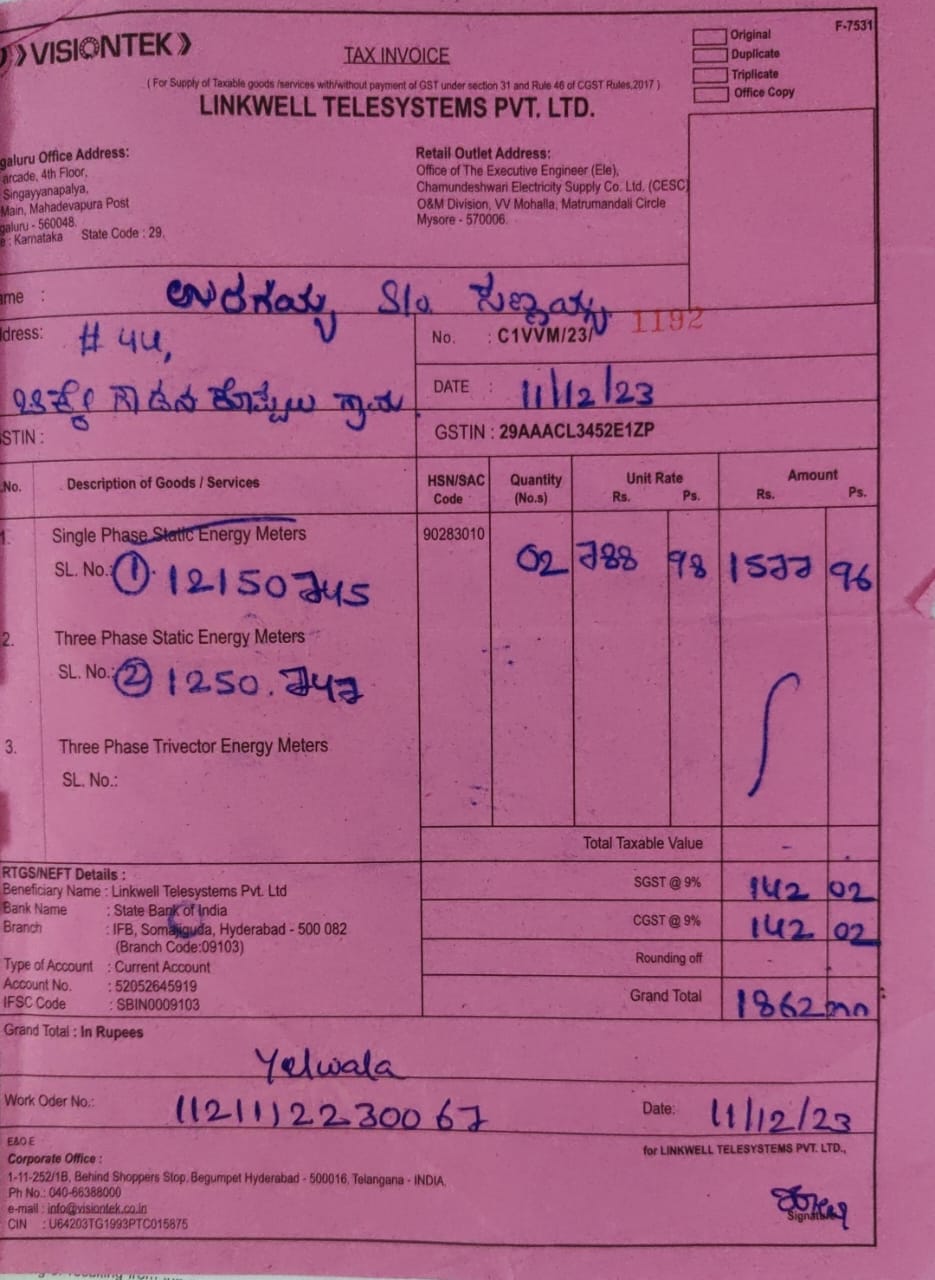 VISIONTEK
F-7531
TAX INVOICE
Original
Duplicate
Triplicate
Office Copy
( For Supply of Taxable goods /services with/without payment of GST under section 31 and Rule 46 of CGST Rules,2017 )
LINKWELL TELESYSTEMS PVT. LTD.
galuru Office Address:
arcade, 4th Floor,
Singayyanapalya,
Main, Mahadevapura Post
galuru - 560048.
e : Karnataka State Code : 29.
Retail Outlet Address:
Office of The Executive Engineer (Ele),
Chamundeshwari Electricity Supply Co. Ltd. (CESC)
O&M Division, VV Mohalla, Matrumandali Circle
Mysore - 570006.
ame : ಉರಗಯ್ಯ S/o. ಸುಣ್ಣಯ್ಯ
ddress: # 44,
No. : C1VVM/23/ 1192
DATE : 11/12/23
ಗ್ರಾಮ.
STIN :
GSTIN : 29AAACL3452E1ZP
.No. Description of Goods / Services HSN/SAC Code Quantity (No.s) Unit Rate Rs. Ps. Amount Rs. Ps.
1. Single Phase Static Energy Meters 90283010 02 788 98 1577 96
SL. No.: ① 12150745
2. Three Phase Static Energy Meters
SL. No.: ② 1250.747
3. Three Phase Trivector Energy Meters
SL. No.:
Total Taxable Value -
SGST @ 9% 142 02
CGST @ 9% 142 02
Rounding off -
Grand Total 1862
RTGS/NEFT Details :
Beneficiary Name : Linkwell Telesystems Pvt. Ltd
Bank Name : State Bank of India
Branch : IFB, Somajiguda, Hyderabad - 500 082
(Branch Code:09103)
Type of Account : Current Account
Account No. : 52052645919
IFSC Code : SBIN0009103
Grand Total : In Rupees
Yelwala
Work Oder No.: 11211122300 67
Date: 11/12/23
E&O E
for LINKWELL TELESYSTEMS PVT. LTD.,
Corporate Office :
1-11-252/1B, Behind Shoppers Stop, Begumpet Hyderabad - 500016, Telangana - INDIA.
Ph No.: 040-66388000
e-mail : info@visiontek.co.in
CIN : U64203TG1993PTC015875
Signature